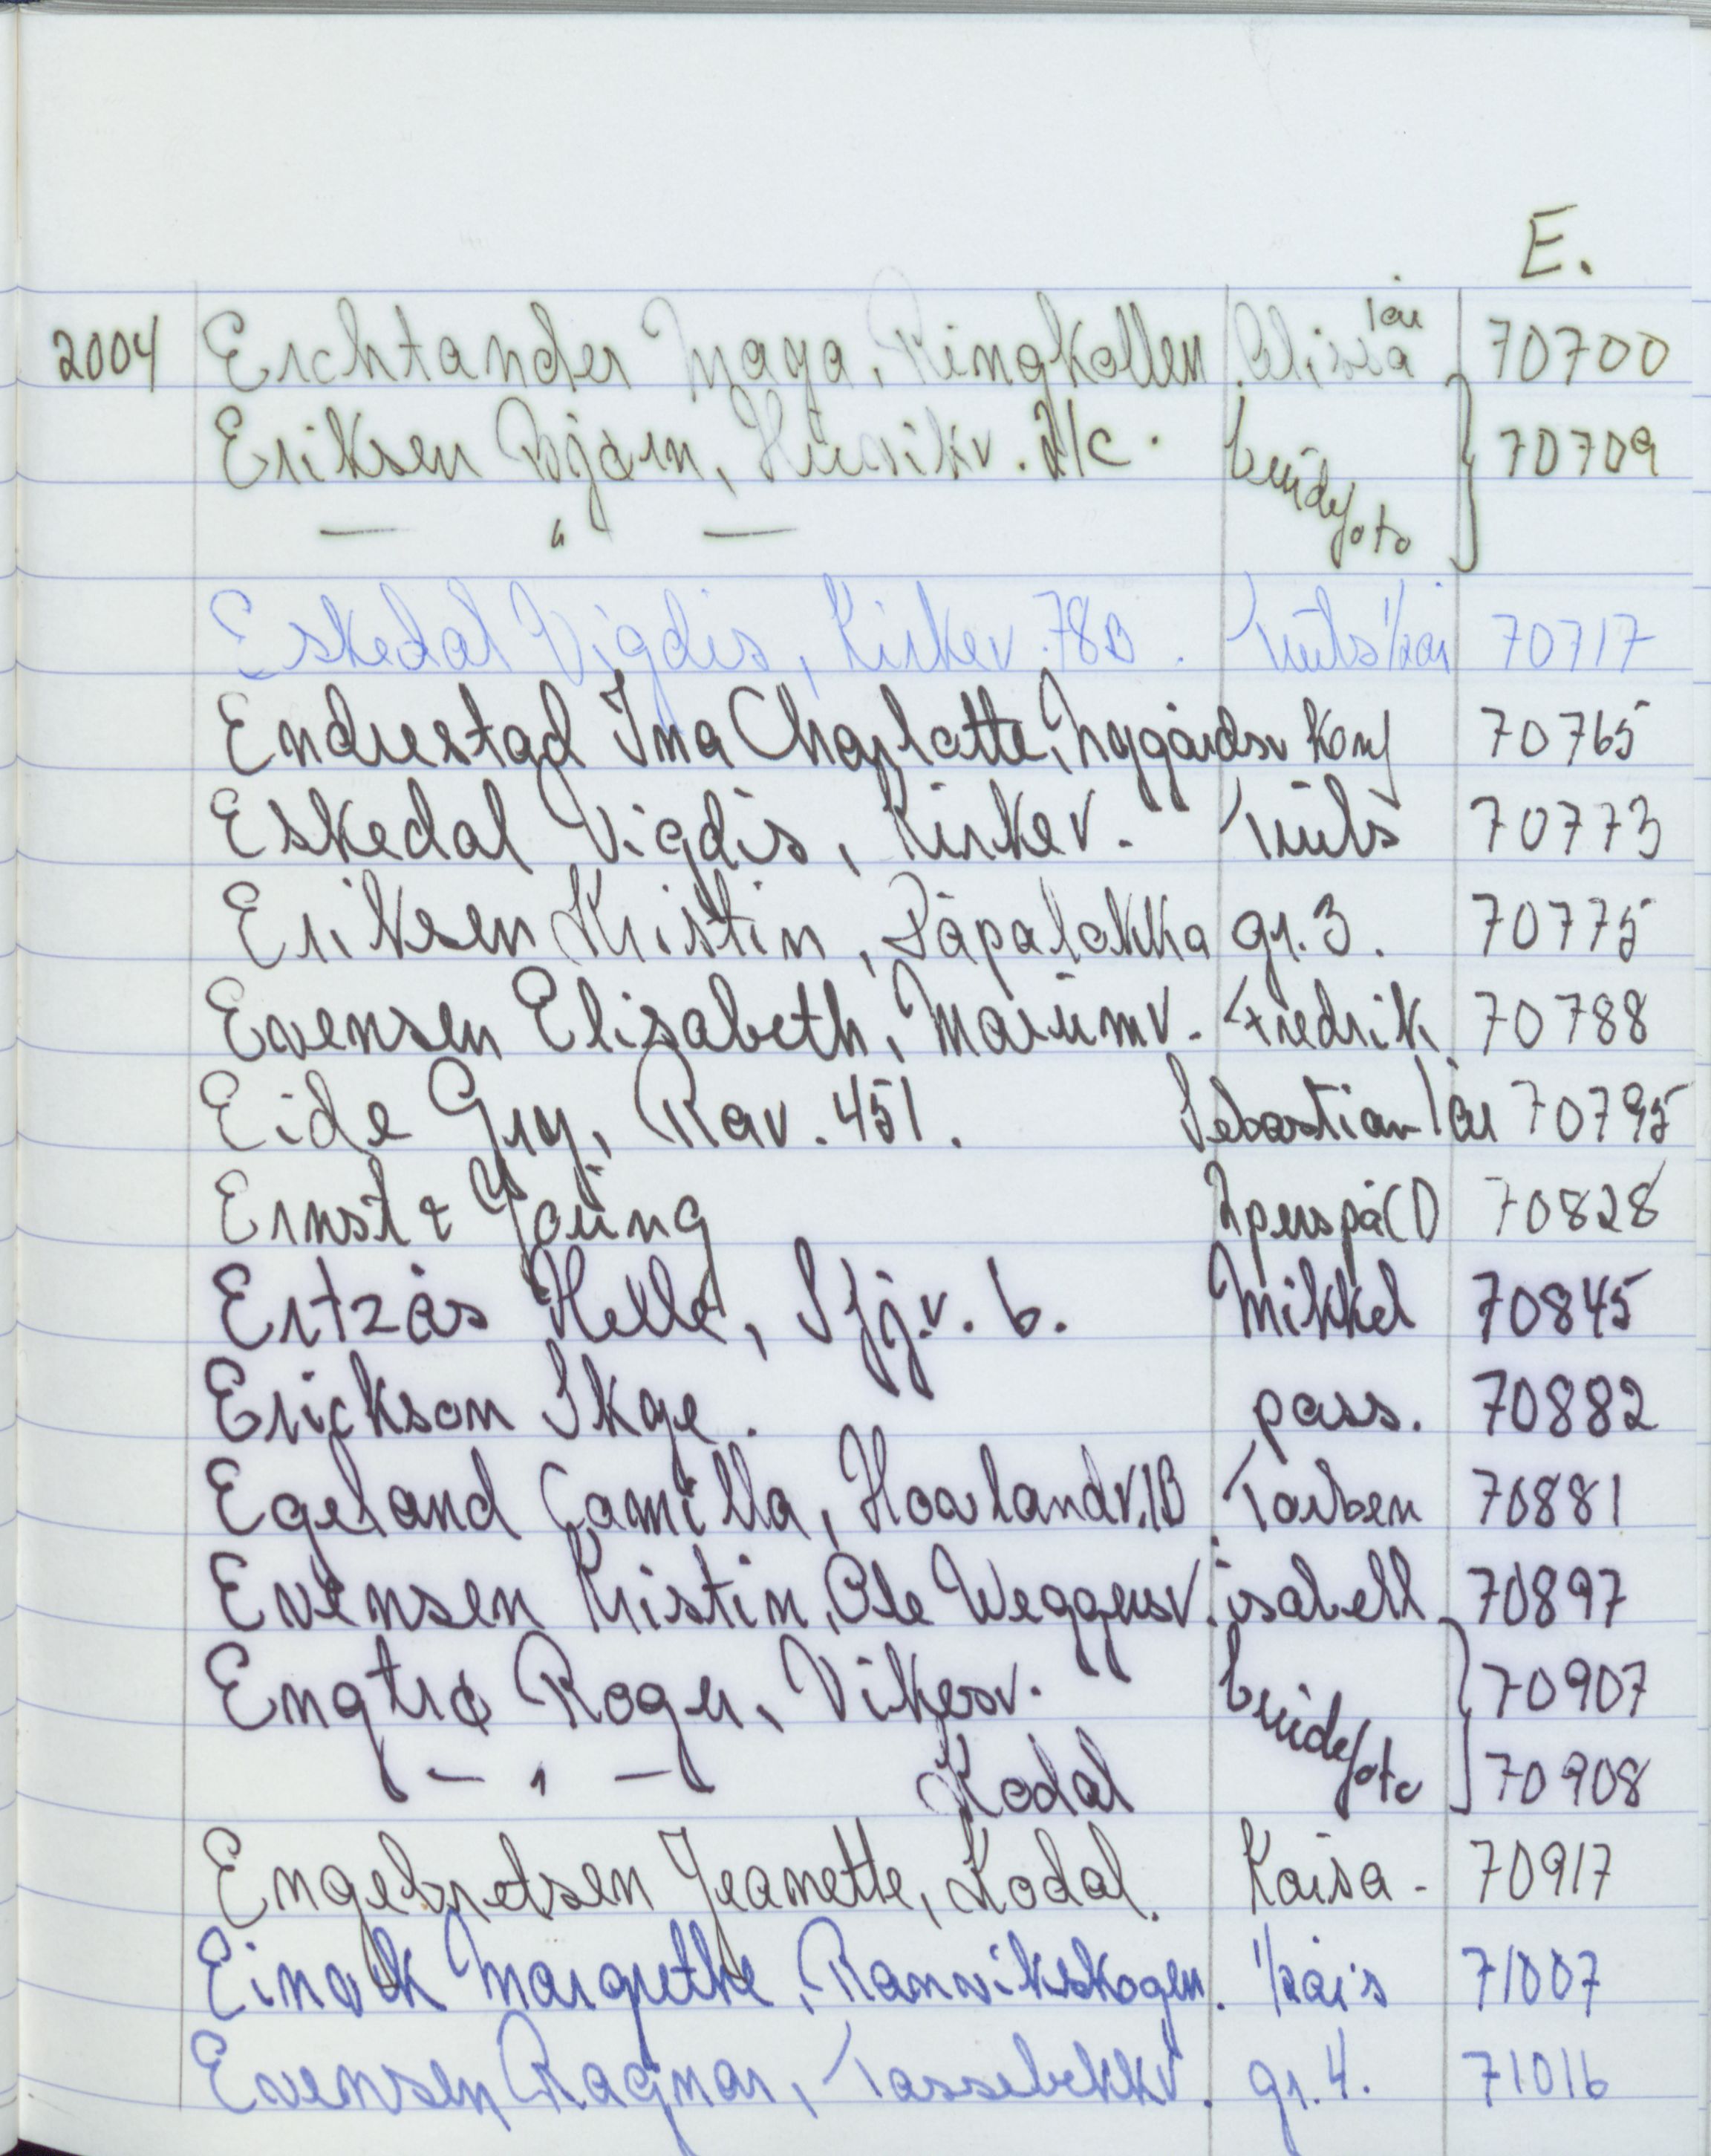 E.
2004 Erchtander Maya, Ringkollen. 1 år 70700
Eriksen Bjørn, brudefoto 70709
— " —
Eskedal Vigdis, Kirkev. 78B. Truls 1/2 år 70717
Endrestad Ina Charlotte, Nygårdsv konf 70765
Eskedal Vigdis, Kirkev. Truls 70773
Eriksen Kristin, Såpaløkka gr. 3. 70775
Evensen Elisabeth, Marumv. Fredrik 70788
Eide Gry, Rav. 451. Sebastian 1 år 70795
Ernst & Young 2 pers på CD 70828
Ertzås Helle, Sfj.v. 6. Mikkel 70845
Erickson Skye. pass. 70882
Egeland Camilla, Hovlandv. 1B Torben 70881
Evensen Kristin, Ole Weggersv. isabell 70897
Engtrø Roger, Vikersv. brudefoto 70907
— " — Kodal 70908
Engebretsen Jeanette, Kodal. Kaisa - 70917
Einvik Margrethe, Ranvikskogen. 1/2 års 71007
Evensen Ragnar, Tassebekkv. gr. 4. 71016